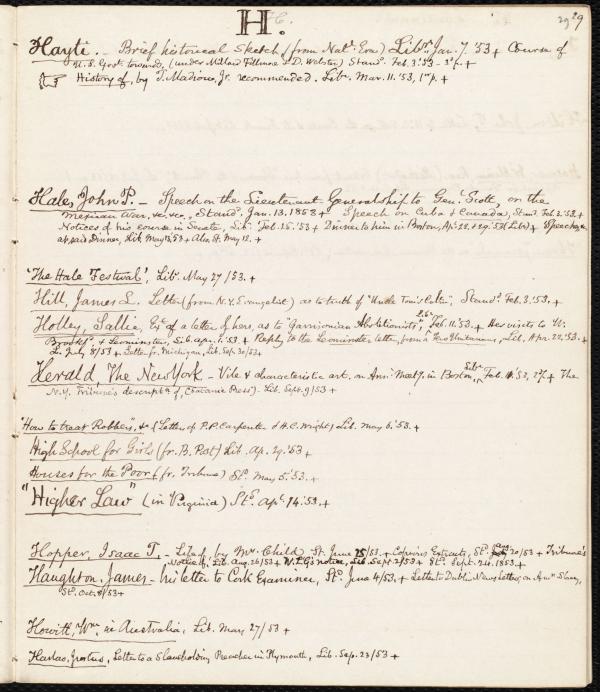 H.
29 29
Hayti. - Brief historical sketch (from Nat. Era) Libr. Jan. 7. '53 + Course of
U.S. Govt. towards, (under Millard Fillmore & D. Webster) Stand. Feb. 3. '53 - 3d p. +
History of, by T. Madiou, Jr. recommended. Libr. Mar. 11. '53, 1st p. +
Hale, John P. - Speech on the Lieutenant Generalship to Genl. Scott, on the
Mexican War, &c. &c., Stand. Jan. 13. 1853 + Speech on Cuba & Canada, Stand. Feb. 3. '53. +
Notices of his course in Senate, Lib. Feb. 25. '53 + Dinner to him in Boston, Apr. 22, & 29. '53 (Lib.) + Speeches
at said Dinner, Lib. May 13, 53 + Also, St. May 12. +
'The Hale Festival', Lib. May 27/53. +
Hill, James L. Letter (from N.Y. Evangelist) as to truth of "Uncle Tom's Cabin", Stand. Feb. 3. '53. +
Holley, Sallie, Ext. of a letter of hers, as to "Garrisonian Abolitionists", Lib. Feb. 11. '53. + Her visits to W.
Brookfd. & Leominster, Lib. Apr. 1. '53. + Reply to the Leominster letter, from a Unitarian, Lib. Apr. 22. '53. +
L. July 8/53 + Letter fr. Michigan, Lib. Sep. 30/53 +
Herald, The New York - Vile & characteristic art. on Ann. Meetg. in Boston, Libr. Feb. 52, 27. + The
N.Y. Tribune's descriptn. of (Satanic Press) - Lib. Sept. 9/53 +
"How to treat Robbers", &c (Letter of P.P. Carpenter & H.C. Wright) Lib. May 6. '53. +
High School for Girls (fr. B. Post) Lib. Ap. 29. '53 +
Houses for the Poor (fr. Tribune) St. May 5. '53. +
"Higher Law" (in Virginia) St. Apl. 14. '53. +
Hopper, Isaac T. - Life of, by Mrs. Child, St. June 25/53. + Copious Extracts, St. Aug. 20/53 + Tribune's
Notice of, Lib. Aug. 26/53 + W.L.G's notice, Lib. Sept. 2/53 + St. Sept. 24. 1853. +
Haughton, James - his letter to Cork Examiner, St. June 4/53. + Letter to Dublin News Letter, on Amn. Slavy.,
St. Oct. 8/53 +
Howitt, Wm. in Australia, Lib. May 27/53 +
Letter to a Slaveholding Preacher in Plymouth, Lib. Sep. 23/53 +